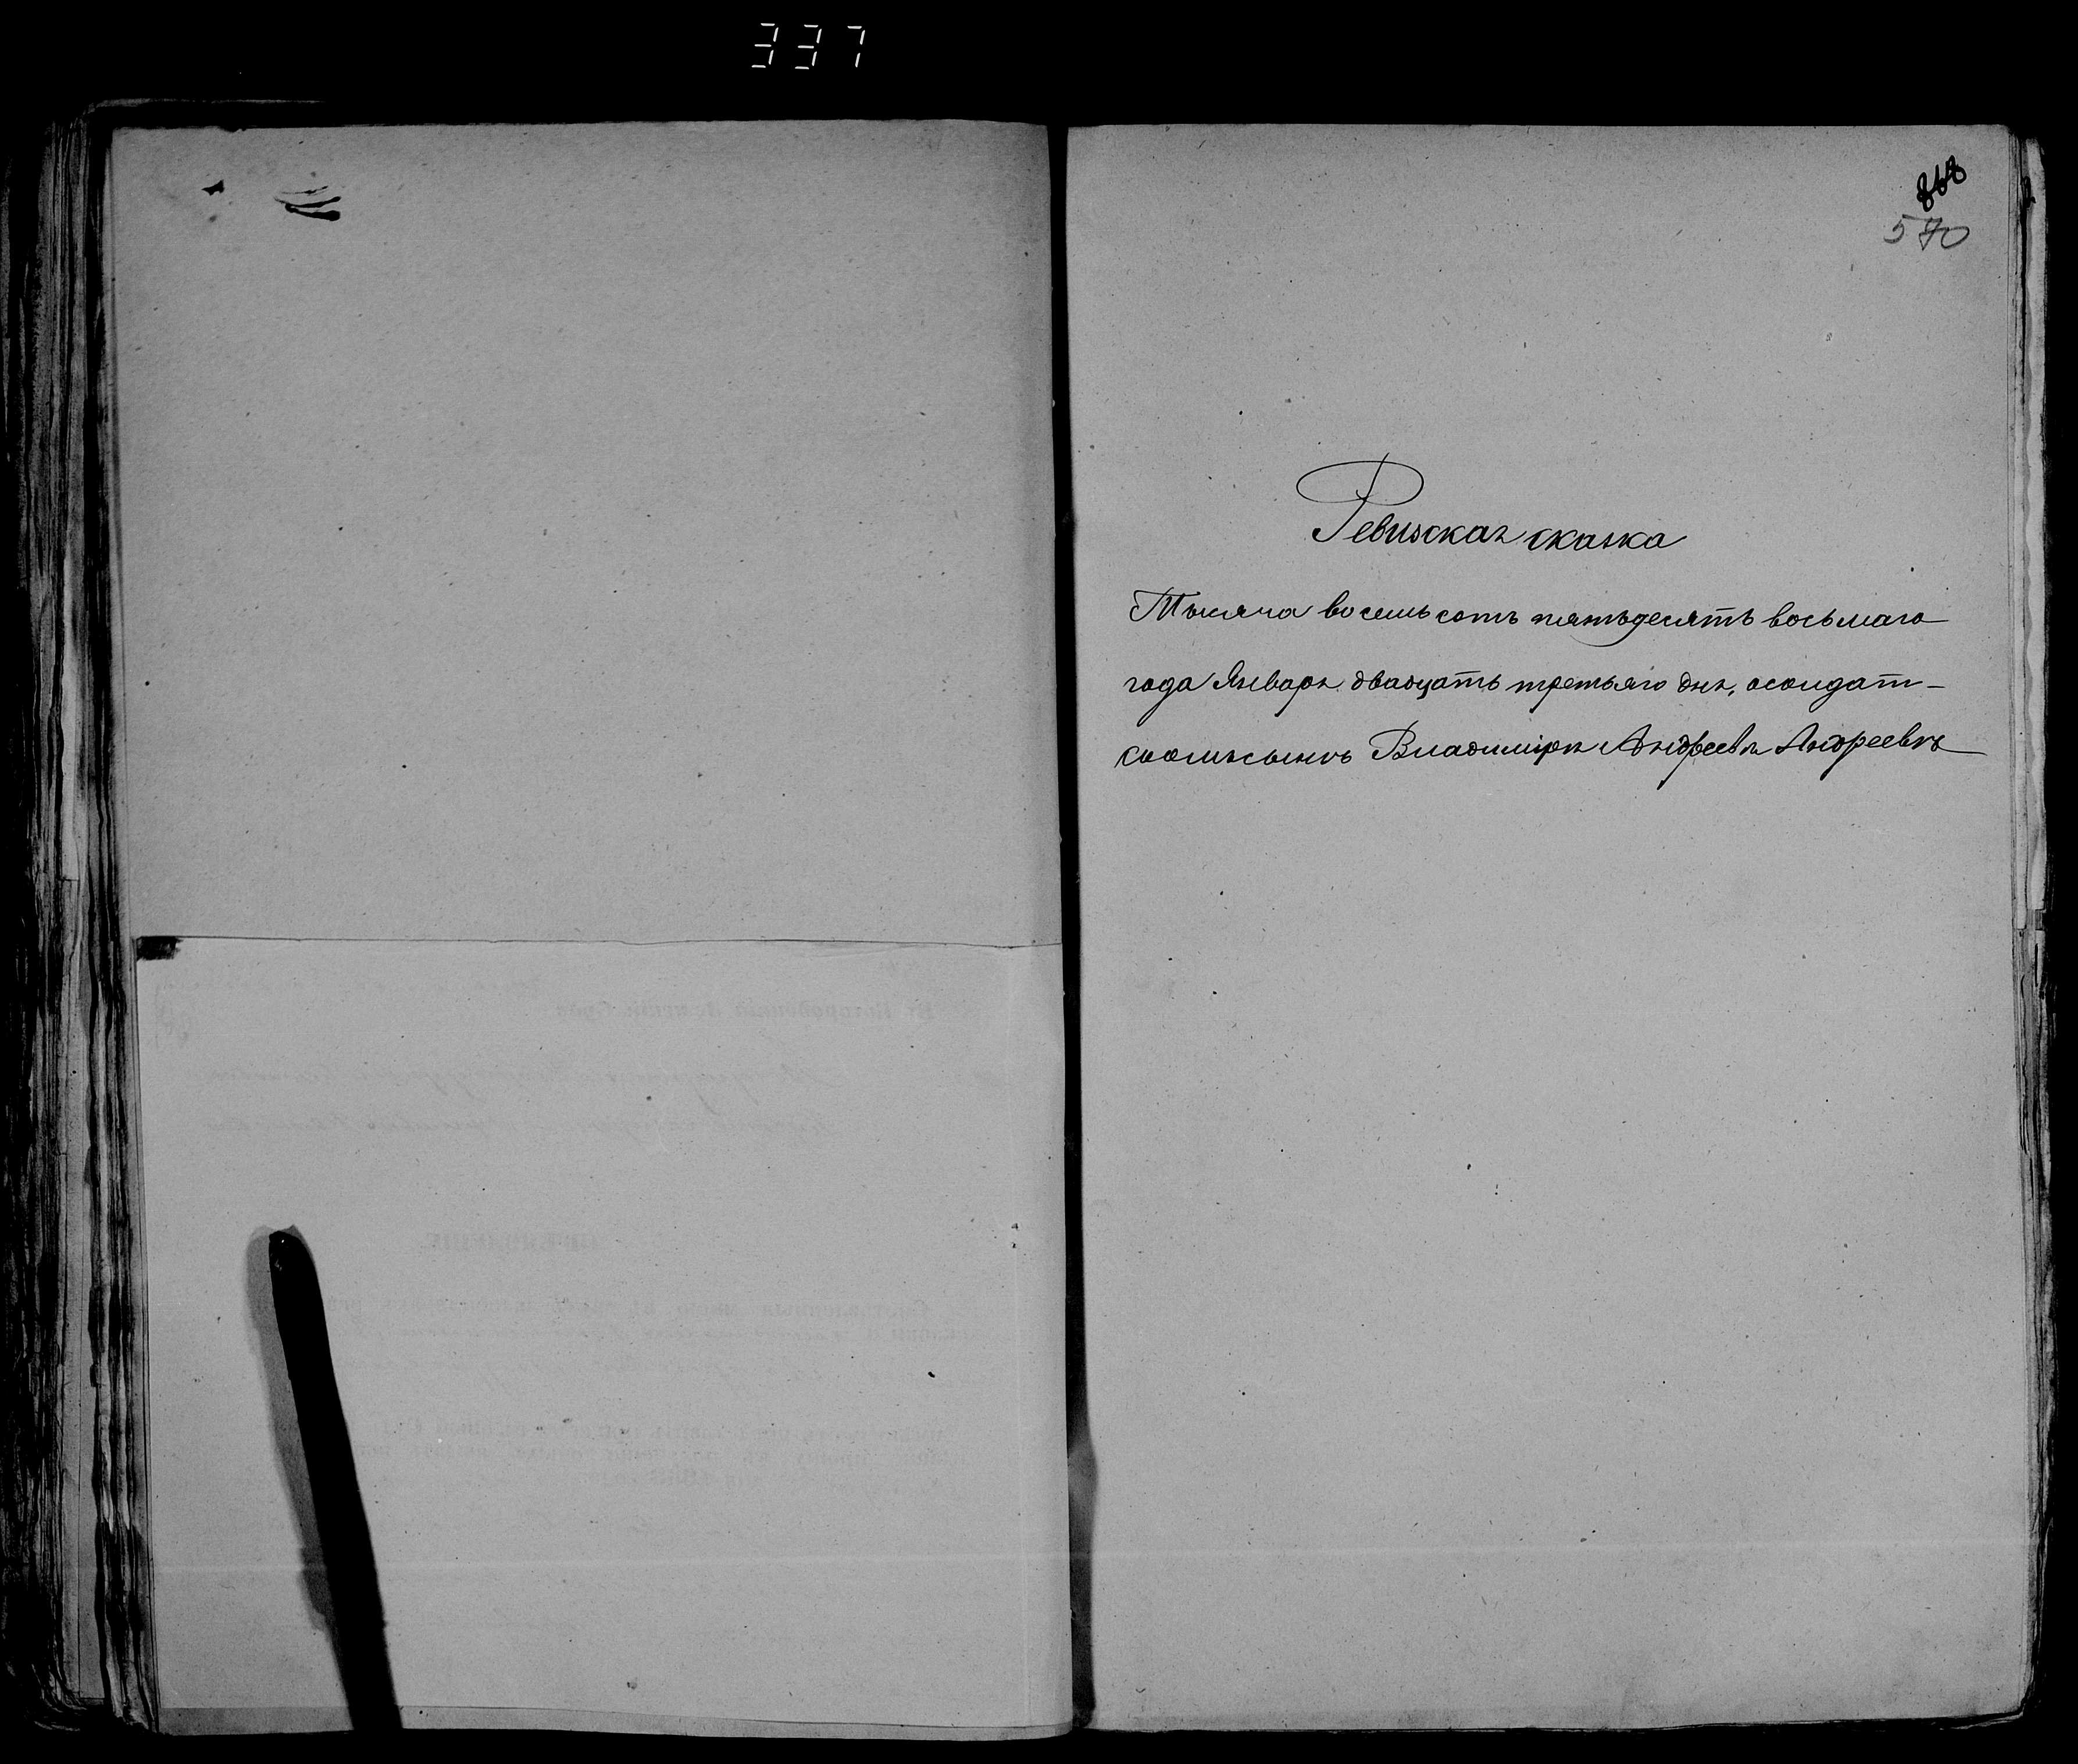 337
868
570
Ревизская сказка
Тысяча восемьсотъ пятьдесятъ восьмаго
года Января двадцать третьяго дня, о солдат-
скомъ сынѣ Владимірѣ Андреевѣ Андреевѣ